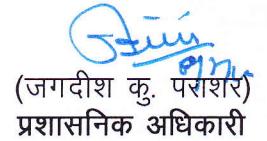 (जगदीश कु. पराशर)
प्रशासनिक अधिकारी